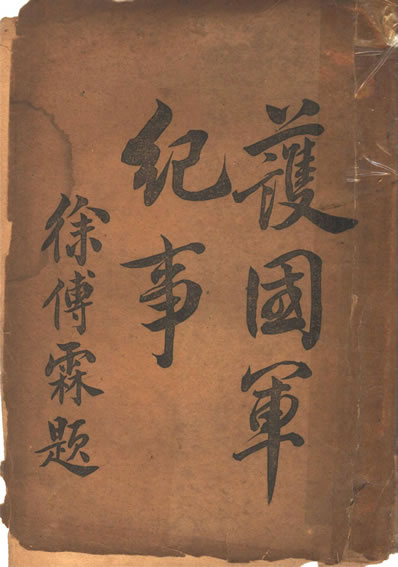 護國軍
紀事
徐傅霖題